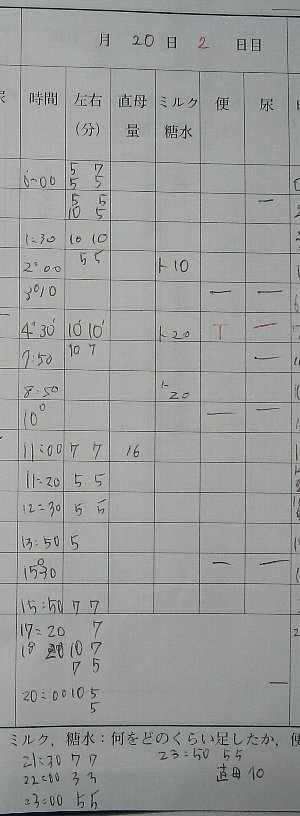 月 20 日 2 日目
尿 時間 左右 直母 ミルク 便 尿
(分) 量 糖水
0:00 5 7
5 5
5 5 一
10 5
1:30 10 10
2°00 5 5 ト10
3°10 一 一
4°30' 10' 10' ト20 T 一
7:50 10 7 一
8:50 ト20
10° 一 一
11:00 7 7 16
11=20 5 5
12=30 5 5
13:50 5
15°30 一 一
15:50 7 7
17=20 7
10 7
7 5
20=00 10 5 一
5
ミルク，糖水：何をどのくらい足したか，便
21:30 7 7 23:50 5 5
22:00 3 3 直母 10
23:00 5 5